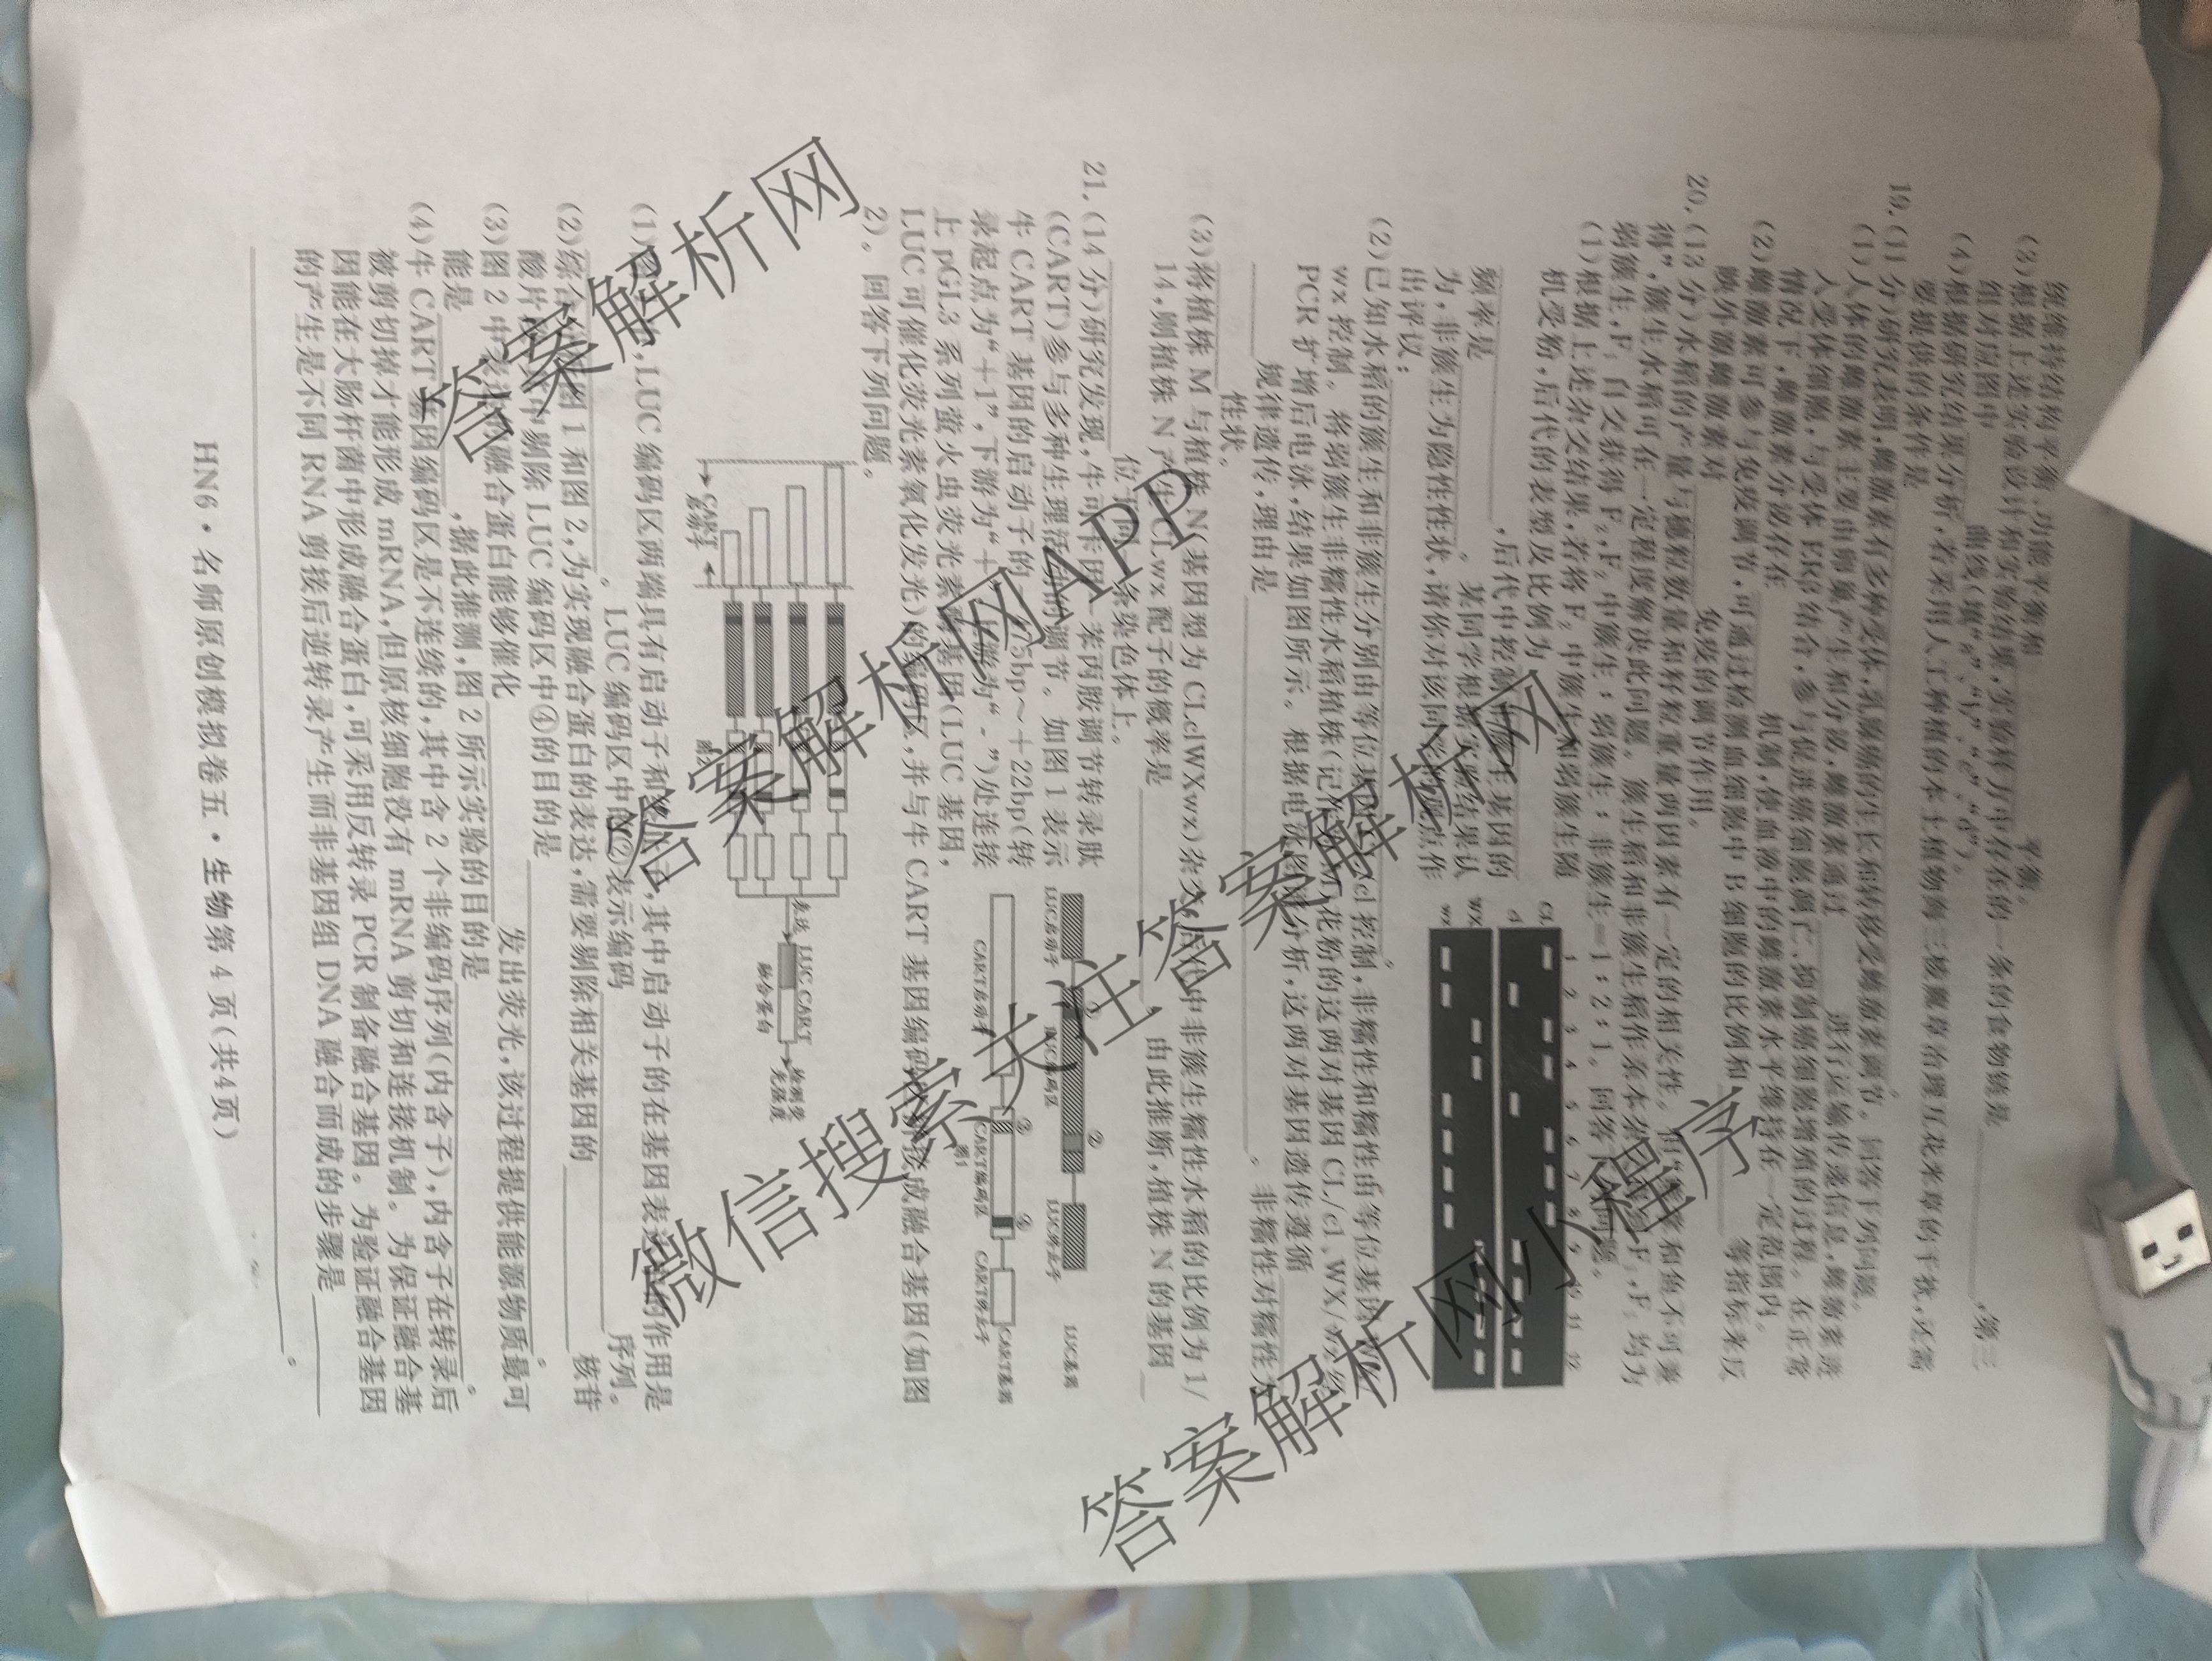 统维持结构平衡、功能平衡和 平衡。
(3)根据上述实验设计和实验结果,实验样方中存在的一条的食物链是 ,第三
组对应图中 曲线(填“a”、“b”、“c”、“d”)。
(4)根据研究结果分析,若采用人工种植的本土植物南三棱魔草治理互花米草的干扰,还需
要提供的条件是 。
19.(11分)研究表明,雌激素有多种受体,乳腺癌的生长和转移受雌激素调节。回答下列问题。
(1)人体的雌激素主要由卵巢产生和分泌,雌激素通过 进行运输传递信息,雌激素进
入受体细胞,与受体ERβ结合,参与促进癌细胞凋亡、抑制癌细胞增殖的过程。在正常
情况下,雌激素分泌存在 机制,使血液中的雌激素水平维持在一定范围内。
(2)雌激素可参与免疫调节,可通过检测血细胞中B细胞的比例和 等指标来反
映外源雌激素对 免疫的调节作用。
20.(13分)水稻的产量与穗粒数量和籽粒重量两因素有一定的相关性。
得”,簇生水稻可在一定程度解决此问题。簇生稻和非簇生稻作亲本杂交
弱簇生,F₁自交获得F₂,F₂中簇生:弱簇生:非簇生=1:2:1。回答下列问题。
(1)根据上述杂交结果,若将F₂中簇生和弱簇生随
机受粉,后代的表型及比例为
,后代中控制簇生基因的
频率是 。某同学根据
为,非簇生为隐性性状,请你对该同学
出评议: 。
(2)已知水稻的簇生和非簇生分别由等位基因CL/cl控制,非糯性和糯性由等位基因
wx控制。将弱簇生非糯性水稻植株
PCR扩增后电泳,结果如图所示。根据电泳图谱分析,这两对基因遗传遵循
规律遗传,理由是 。非糯性对糯性为
性状。
CL
cl
WX
wx
1 2 3 4 5 6 7 8 9 10 11 12
(3)将植株M与植株N(基因型为CLclWXwx)杂交,后代中非簇生糯性水稻的比例为1/
14,则植株N产生CLwx配子的概率是 。由此推断,植株N的基因
位于 条染色体上。
21.(14分)研究发现,牛可卡因-苯丙胺调节转录肽
(CART)参与多种生理活动的调节。如图1表示
牛CART基因的启动子的 75bp~+22bp(转
录起点为“+1”,下游为“+”,上游为“-”)处连接
上pGL3系列萤火虫荧光素酶基因(LUC基因,
LUC可催化荧光素氧化发光)的编码区,并与牛CART基因编码区形成融合基因(如图
2)。回答下列问题。
LUC启动子
②
LUC编码区
LUC终止子
LUC基因
CART启动子
③
CART编码区
④
CART终止子
CART基因
图1
CART
启动子
表达
LUC CART
融合蛋白
检测荧
光强度
图2
(1) ,LUC编码区两端具有启动子和终止子,其中启动子的在基因表达中的作用是
。LUC编码区中的②表示编码 序列。
(2)综合分析图1和图2,为实现融合蛋白的表达,需要剔除相关基因的 核苷
酸片段,其中剔除LUC编码区中④的目的是 。
(3)图2中表达的融合蛋白能够催化 发出荧光,该过程提供能源物质最可
能是 ,据此推测,图2所示实验的目的是 。
(4)牛CART基因编码区是不连续的,其中含2个非编码序列(内含子),内含子在转录后
被剪切掉才能形成mRNA,但原核细胞没有mRNA剪切和连接机制。为保证融合基
因能在大肠杆菌中形成融合蛋白,可采用反转录PCR制备融合基因。为验证融合基因
的产生是不同RNA剪接后逆转录产生而非基因组DNA融合而成的步骤是
。
HN6·名师原创模拟卷五·生物第4页(共4页)
答案解析网
答案解析网APP
微信搜索关注答案解析网
答案解析网小程序